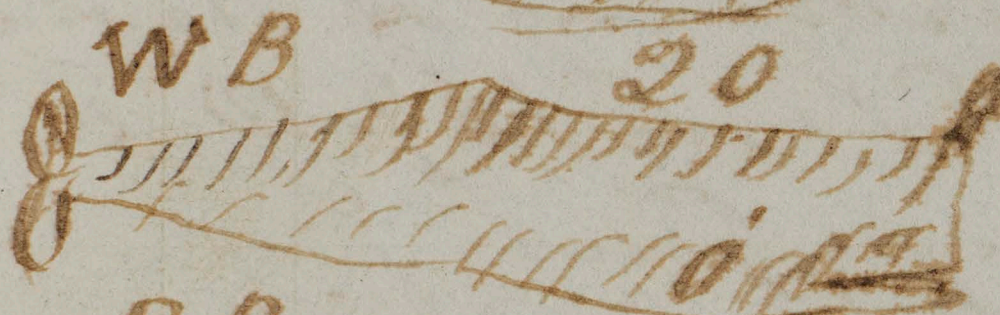 WB 20